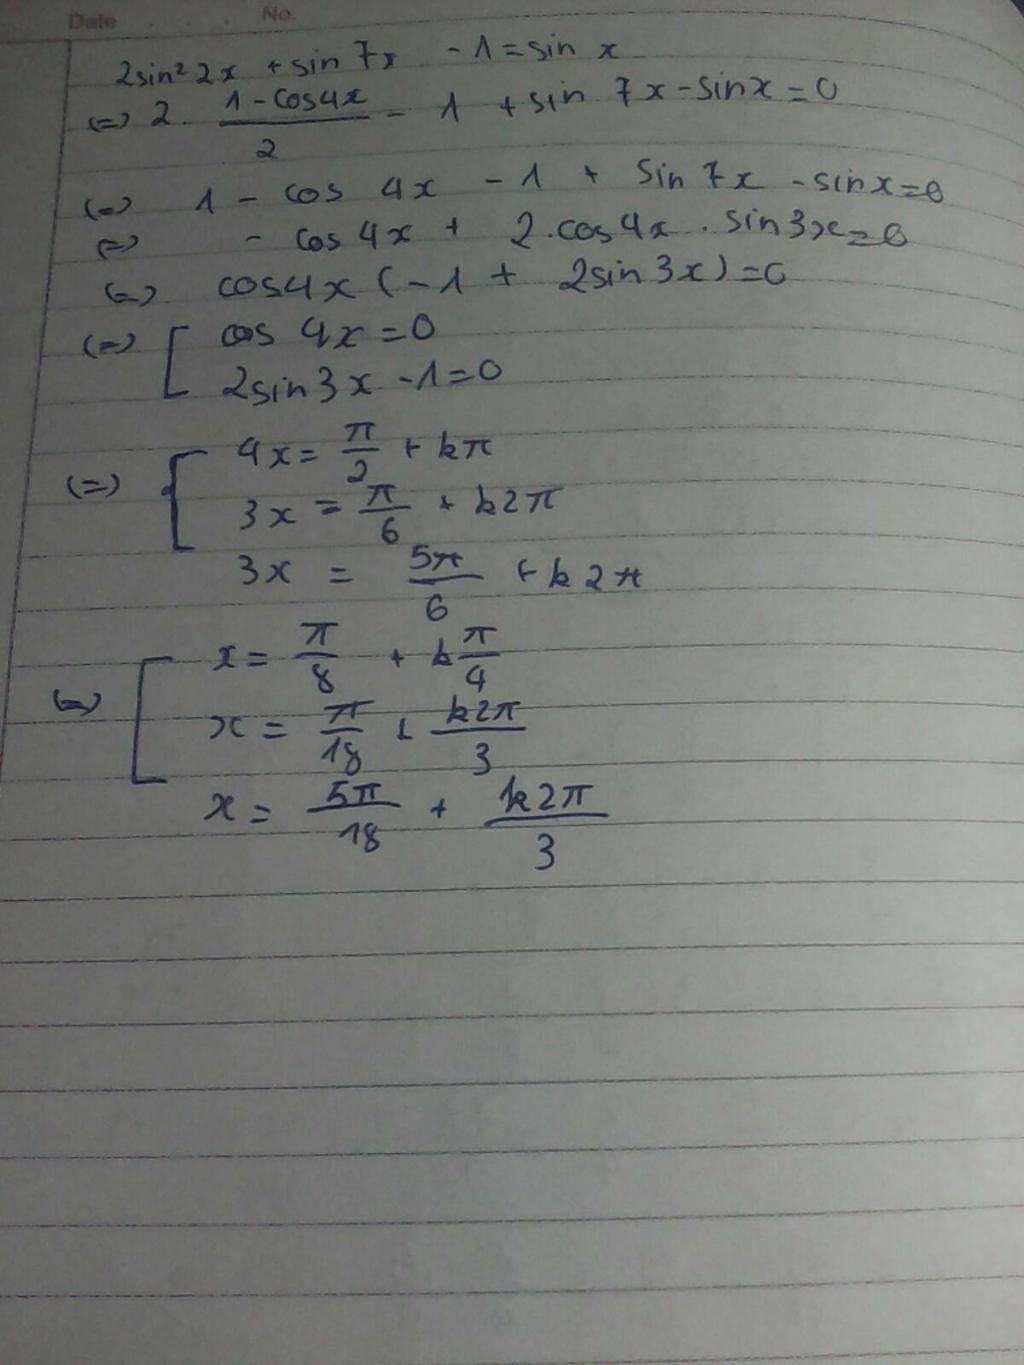 Date No.
2sin² 2x + sin 7x - 1 = sin x
(=) 2. (1 - cos4x)/2 - 1 + sin 7x - sinx = 0
(=) 1 - cos 4x - 1 + sin 7x - sinx = 0
(=) - cos 4x + 2.cos4x . sin3x = 0
(=) cos4x (-1 + 2sin 3x) = 0
(=) [ cos 4x = 0
2sin3x - 1 = 0
(=) [ 4x = π/2 + kπ
3x = π/6 + k2π
3x = 5π/6 + k2π
(=) [ x = π/8 + k π/4
x = π/18 + k2π/3
x = 5π/18 + k2π/3